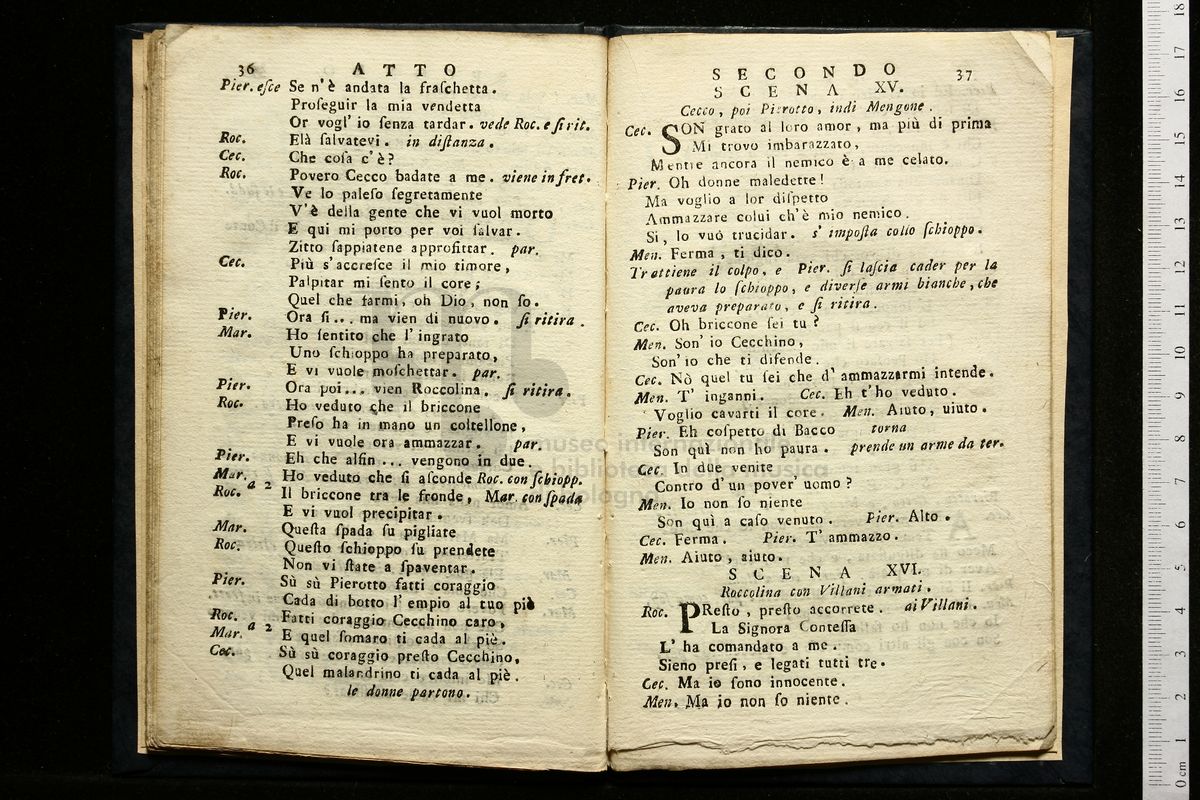 36 ATTO
Pier. eſce Se n'è andata la fraſchetta.
Proſeguir la mia vendetta
Or vogl' io ſenza tardar. vede Roc. e ſi rit.
Roc. Elà ſalvatevi. in diſtanza.
Cec. Che coſa c'è?
Roc. Povero Cecco badate a me. viene in fret.
Ve lo paleſo ſegretamente
V'è della gente che vi vuol morto
E qui mi porto per voi ſalvar.
Zitto ſappiatene approfittar. par.
Cec. Più s'accreſce il mio timore,
Palpitar mi ſento il core;
Quel che farmi, oh Dio, non ſo.
Pier. Ora ſi... ma vien di nuovo. ſi ritira.
Mar. Ho ſentito che l'ingrato
Uno ſchioppo ha preparato,
E vi vuole moſchettar. par.
Pier. Ora poi... vien Roccolina. ſi ritira.
Roc. Ho veduto che il briccone
Preſo ha in mano un coltellone,
E vi vuole ora ammazzar. par.
Pier. Eh che alfin... vengono in due.
Mar. Ho veduto che ſi aſconde Roc. con ſchiopp.
Roc. a 2 Il briccone tra le fronde, Mar. con ſpada
E vi vuol precipitar.
Mar. Queſta ſpada ſu pigliate
Roc. Queſto ſchioppo ſu prendete
Non vi ſtate a ſpaventar.
Pier. Sù sù Pierotto fatti coraggio
Cada di botto l'empio al tuo piè
Roc. Fatti coraggio Cecchino caro,
Mar. a 2 E quel ſomaro ti cada al piè.
Cec. Sù sù coraggio preſto Cecchino,
Quel malandrino ti cada al piè.
le donne partono.
SECONDO 37
SCENA XV.
Cecco, poi Pierotto, indi Mengone.
Cec. SON grato al loro amor, ma più di prima
Mi trovo imbarazzato,
Mentre ancora il nemico è a me celato.
Pier. Oh donne maledette!
Ma voglio a lor diſpetto
Ammazzare colui ch'è mio nemico.
Si, lo vuò trucidar. s' impoſta collo ſchioppo.
Men. Ferma, ti dico.
Trattiene il colpo, e Pier. ſi laſcia cader per la
paura lo ſchioppo, e diverſe armi bianche, che
aveva preparato, e ſi ritira.
Cec. Oh briccone ſei tu?
Men. Son' io Cecchino,
Son' io che ti difende.
Cec. Nò quel tu ſei che d' ammazzarmi intende.
Men. T' inganni. Cec. Eh t'ho veduto.
Voglio cavarti il core. Men. Aiuto, uiuto.
Pier. Eh coſpetto di Bacco torna
Son quì non ho paura. prende un arme da ter.
Cec. In due venite
Contro d'un pover' uomo?
Men. Io non ſo niente
Son quì a caſo venuto. Pier. Alto.
Cec. Ferma. Pier. T' ammazzo.
Men. Aiuto, aiuto.
SCENA XVI.
Roccolina con Villani armati.
Roc. PReſto, preſto accorrete. ai Villani.
La Signora Conteſſa
L' ha comandato a me.
Sieno preſi, e legati tutti tre.
Cec. Ma io ſono innocente.
Men. Ma io non ſo niente.
museo internazionale
biblioteca della musica
bologna
0 cm 1 2 3 4 5 6 7 8 9 10 11 12 13 14 15 16 17 18